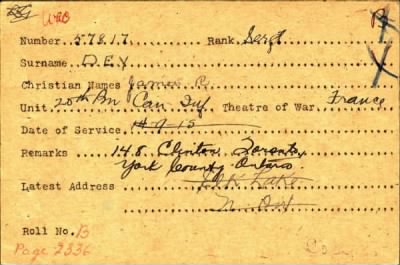 WRB
Number 57817 Rank Sergt
Surname DEX
Christian Names James R.
Unit 20th Bn Can Inf. Theatre of War France
Date of Service 14-9-15
Remarks 148 Clinton Toronto,
York County Ontario
Latest Address Lake
N. Ont
Roll No. B
Page 2336